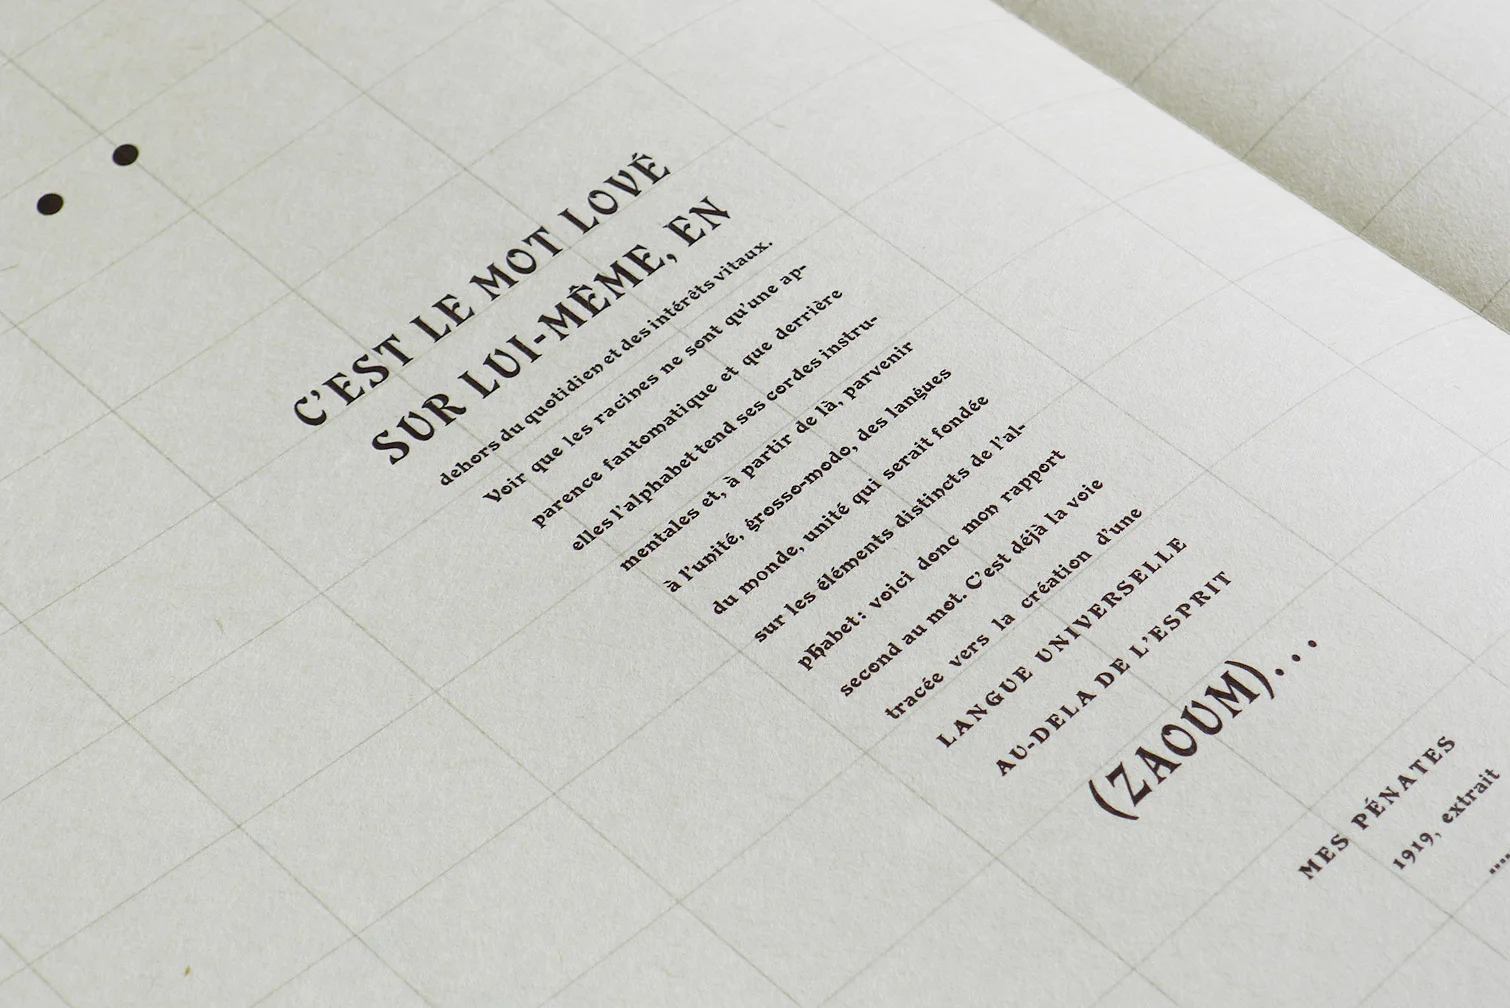 C'EST LE MOT LOVÉ
SUR LUI-MÊME, EN
dehors du quotidien et des intérêts vitaux.
Voir que les racines ne sont qu'une ap-
parence fantomatique et que derrière
elles l'alphabet tend ses cordes instru-
mentales et, à partir de là, parvenir
à l'unité, grosso-modo, des langues
du monde, unité qui serait fondée
sur les éléments distincts de l'al-
phabet : voici donc mon rapport
second au mot. C'est déjà la voie
tracée vers la création d'une
LANGUE UNIVERSELLE
AU-DELA DE L'ESPRIT
(ZAOUM)...
MES PÉNATES
1919, extrait